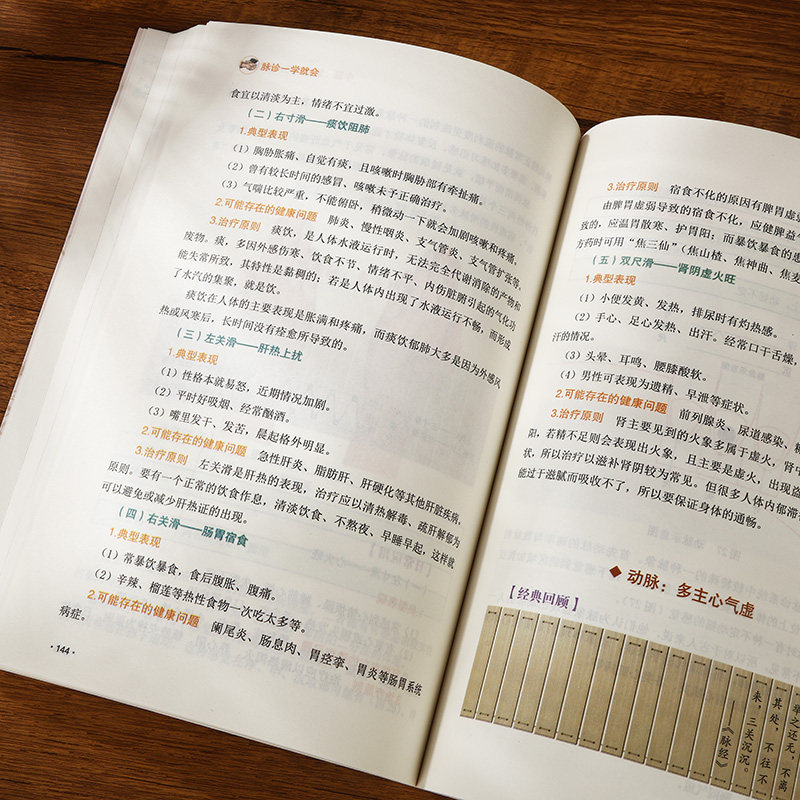 脉诊一学就会
食宜以清淡为主，情绪不宜过激。
（二）右寸滑——痰饮阻肺
1.典型表现
（1）胸胁胀痛、自觉有痰，且咳嗽时胸胁部有牵扯痛。
（2）曾有较长时间的感冒、咳嗽未予正确治疗。
（3）气喘比较严重，不能俯卧，稍微动一下就会加剧咳嗽和疼痛。
2.可能存在的健康问题　肺炎、慢性咽炎、支气管炎、支气管扩张等。
3.治疗原则　痰饮，是人体水液运行时，无法完全代谢消除的产物和
废物。痰，多因外感伤寒、饮食不节、情绪不平、内伤脏腑引起的气化功
能失常所致，其特性是黏稠的；若是人体内出现了水液运行不畅，而形成
了水汽的集聚，就是饮。
痰饮在人体的主要表现是胀满和疼痛，而痰饮郁肺大多是因为外感风
热或风寒后，长时间没有痊愈所导致的。
（三）左关滑——肝热上扰
1.典型表现
（1）性格本就易怒，近期情况加剧。
（2）平时好吸烟、经常酗酒。
（3）嘴里发干、发苦，晨起格外明显。
2.可能存在的健康问题　急性肝炎、脂肪肝、肝硬化等其他肝脏疾病。
3.治疗原则　左关滑是肝热的表现，治疗应以清热解毒、疏肝解郁为
原则。要有一个正常的饮食作息，清淡饮食、不熬夜、早睡早起，这样就
可以避免或减少肝热证的出现。
（四）右关滑——肠胃宿食
1.典型表现
（1）常暴饮暴食，食后腹胀、腹痛。
（2）辛辣、榴莲等热性食物一次吃太多等。
2.可能存在的健康问题　阑尾炎、肠息肉、胃痉挛、胃炎等肠胃系统
病症。
·144·
3.治疗原则　宿食不化的原因有脾胃虚
由脾胃虚弱导致的宿食不化，应健脾益气
致的，应温胃散寒、护胃阳；而暴饮暴食的患
方药时可用“焦三仙”（焦山楂、焦神曲、焦麦
（五）双尺滑——肾阴虚火旺
1.典型表现
（1）小便发黄、发热，排尿时有灼热感。
（2）手心、足心发热、出汗。经常口干舌燥，
汗的情况。
（3）头晕、耳鸣、腰膝酸软。
（4）男性可表现为遗精、早泄等症状。
2.可能存在的健康问题　前列腺炎、尿道感染、
3.治疗原则　肾主要见到的火象多属于虚火，肾
阳，若精不足则会表现出火象，且主要是虚火，出现盗
状，所以治疗以滋补肾阴较为常见。但很多人体内郁滞
能过于滋腻而吸收不了，所以要保证身体的通畅。
动脉：多主心气虚
【经典回顾】
举之还无，不离
其处，不往不
来，三关沉沉。
——《脉经》